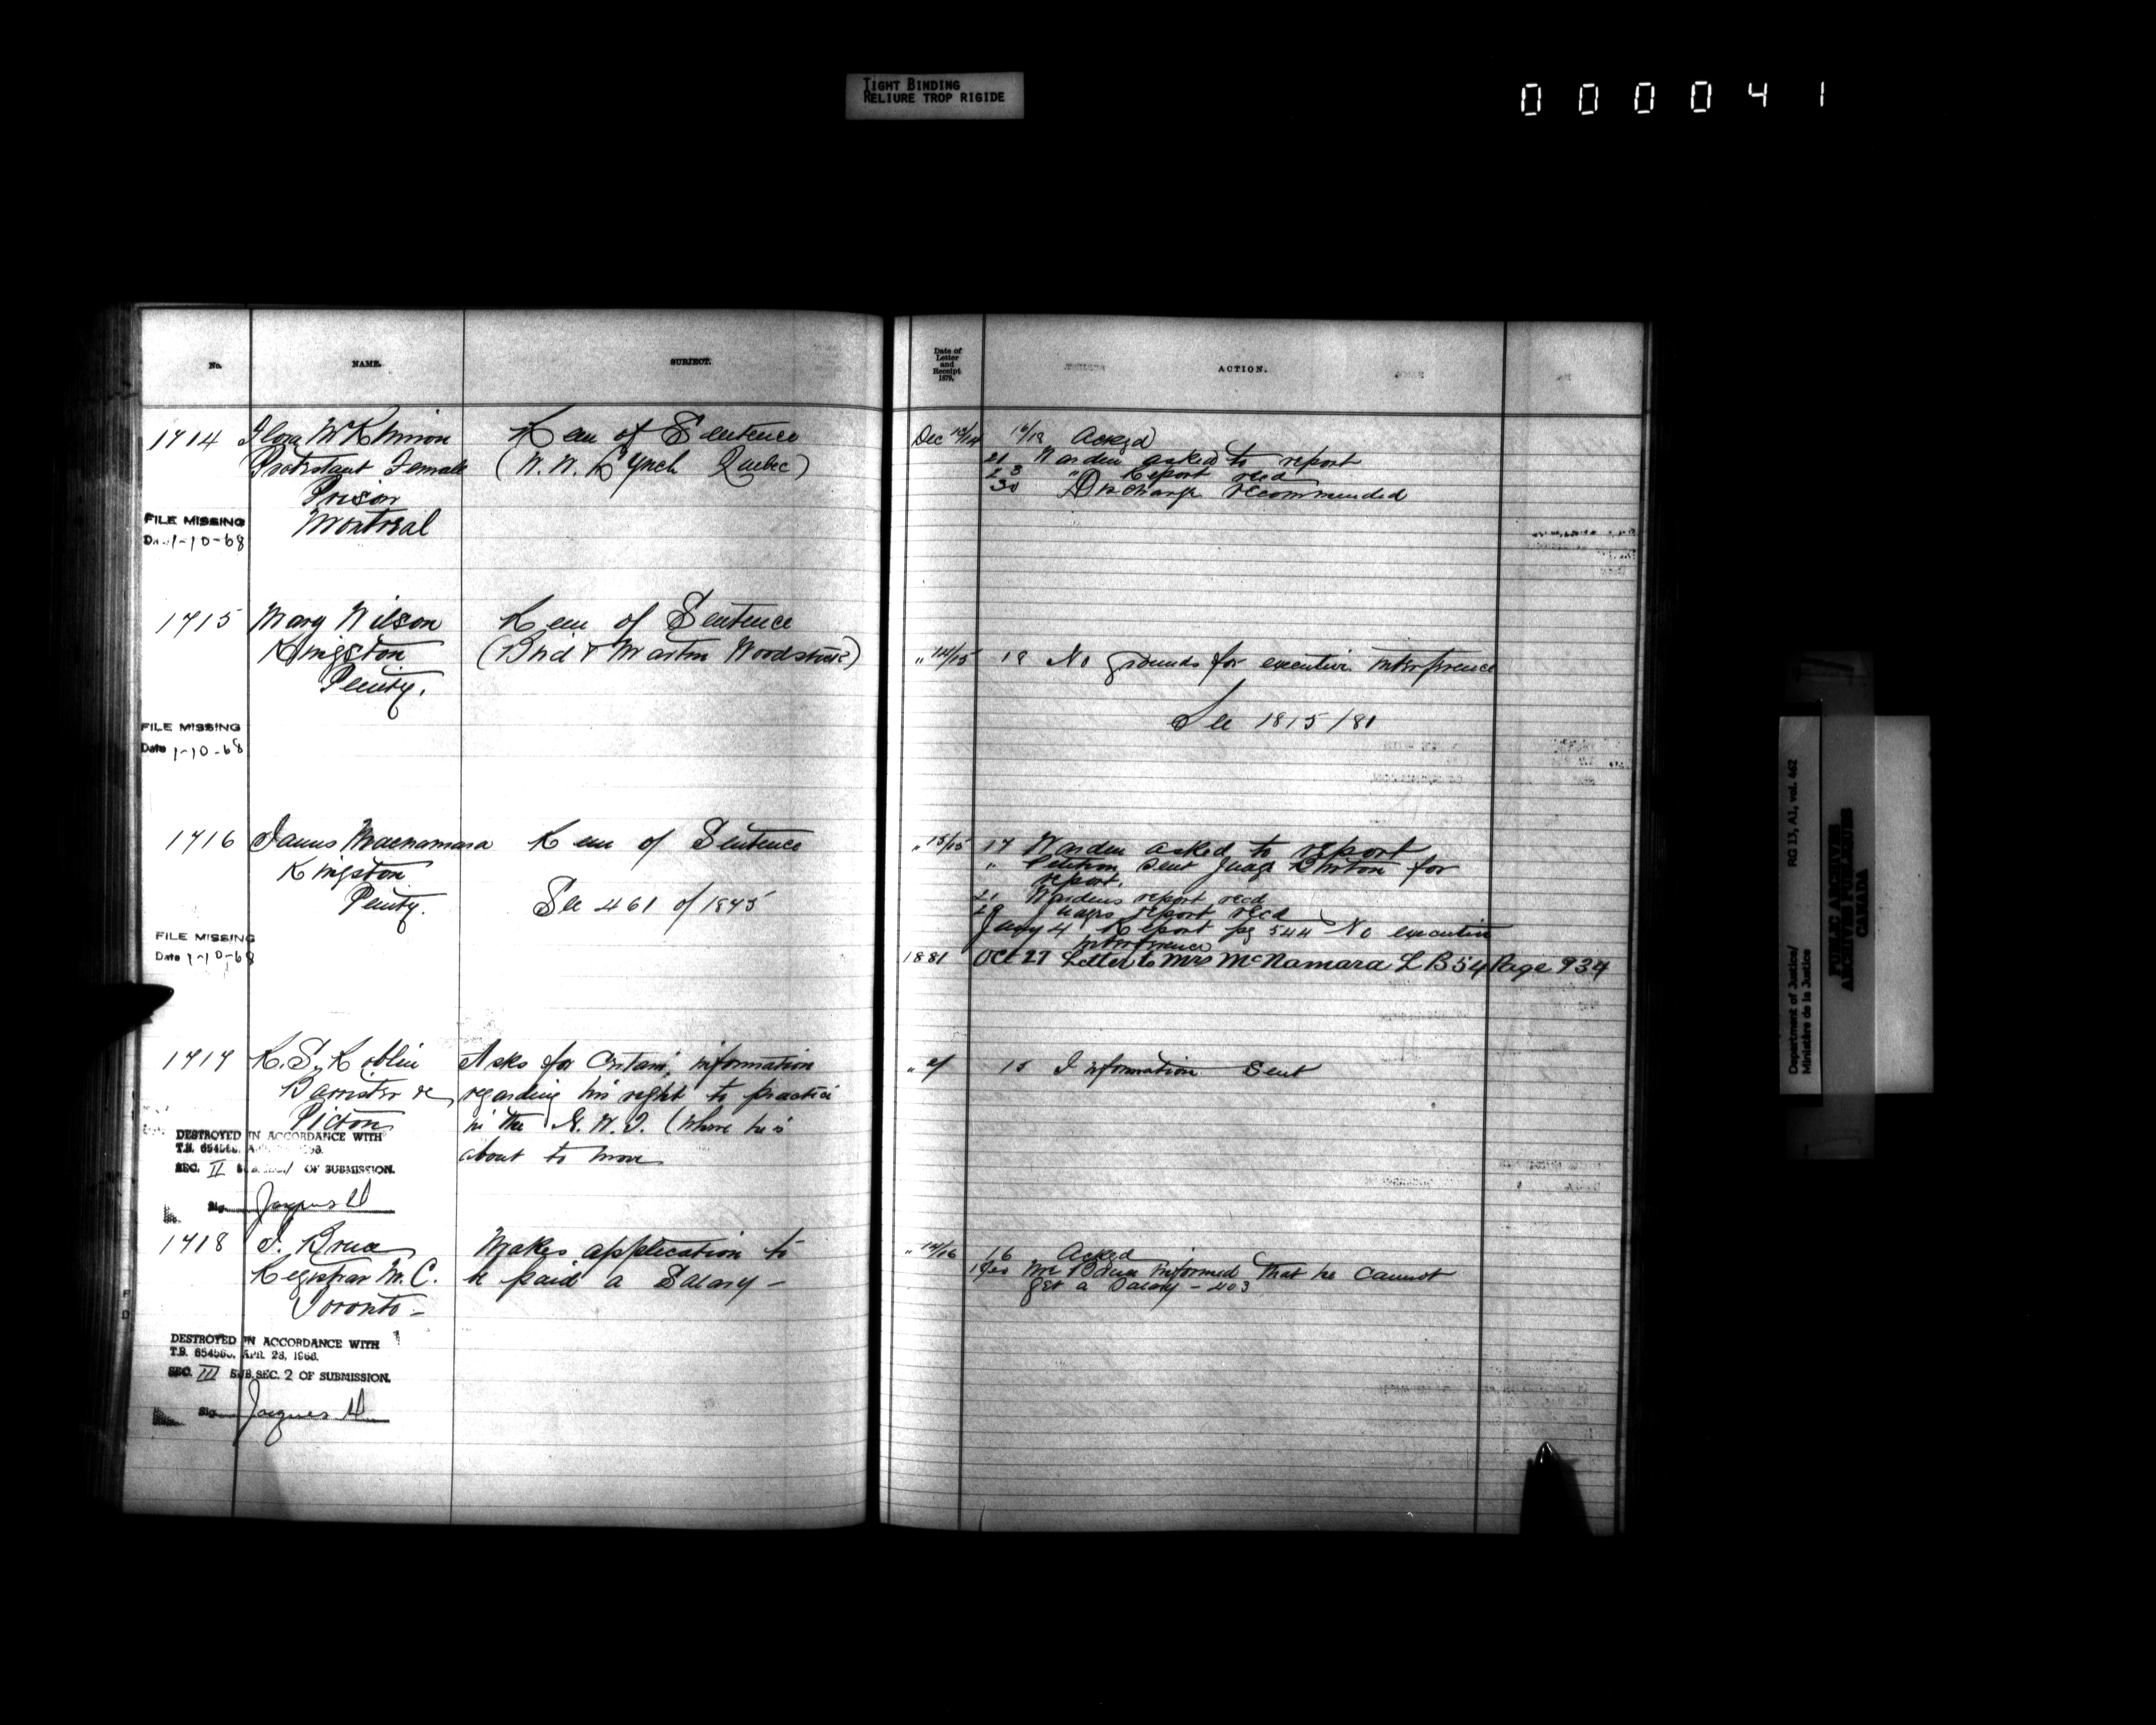 TIGHT BINDING
RELIURE TROP RIGIDE
000041
No.
NAME.
SUBJECT.
Date of
Letter
and
Receipt
1879.
ACTION.
1714 Flora McKinnon Rem of Sentence Dec 13/14 16/18 Ackgd
Protestant Female (W. W. Lynch Quebec) 21 Warden asked to report
Prison 23 " Report recd
Montreal 30 Discharge recommended
FILE MISSING
Date 1-10-68
1715 Mary Wilson Rem of Sentence
Kingston (Bird & Martin Woodstock) " 14/15 18 No grounds for executive interference
Penity.
See 1815/81
FILE MISSING
Date 1-10-68
1716 James Macnamara Rem of Sentence " 13/15 17 Warden asked to report
Kingston " Petition sent Judge for
report.
Penity. See 461 of 1875 21 Wardens report recd
29 Judges report recd
Jany 4 Report pg 544 No executive
interference
FILE MISSING
Date 1-10-68
1881 Oct 27 Letter to Mrs McNamara L B 54 Page 934
1717 R. S. Roblin Asks for certain information 15 Information Sent
Barrister &c regarding his right to practice
Picton in the N. W. T. (where he is
about to move
DESTROYED IN ACCORDANCE WITH
T.B.
SEC. II OF SUBMISSION.
Sig. Jacques
1718 J. Bruce Makes application to " 14/16 16 Ackgd
Registrar M. C. be paid a Salary – Mr Bruce informed that he cannot
Toronto – get a Salary – 403
DESTROYED IN ACCORDANCE WITH
T.B. APR. 28, 1966.
SEC. III SUB.SEC. 2 OF SUBMISSION.
Sig. Jacques
Department of Justice/
Ministère de la Justice
RG 13, A1, vol. 462
PUBLIC ARCHIVES
ARCHIVES PUBLIQUES
CANADA